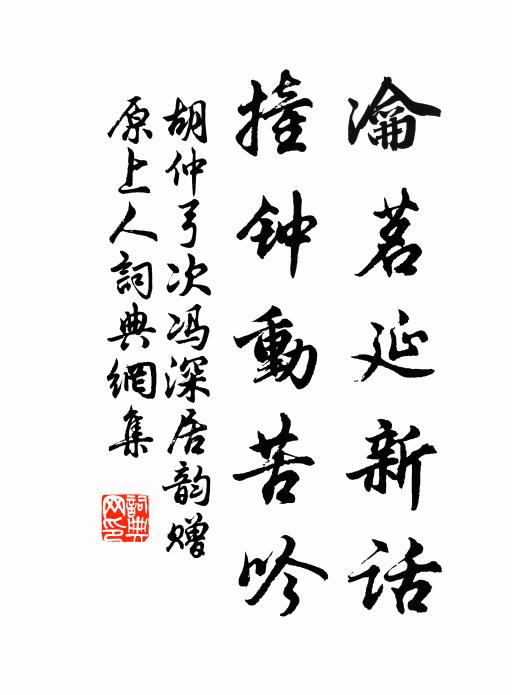 瀹茗延新话
撞钟動苦吟
胡仲弓次冯深居韵赠
原上人詞典網集
詞典網印